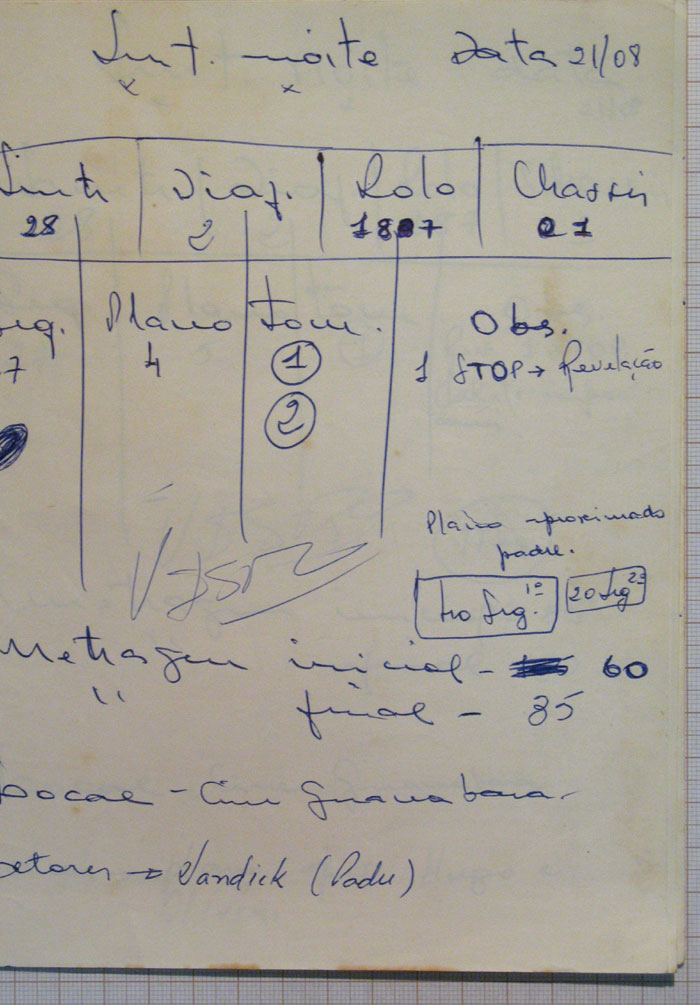 Int. noite Data 21/08
x x
Diaf. Rolo Chassis
28 2 1887 01
Plano Tom. Obs.
7 4 1 1 STOP → Revelação
2
Plano aproximado
padre.
40 Seg. 1º 20 Seg 2º
Metragem inicial - 60
" final - 85
Local - Cine Guanabara.
Atores → Vandick (Padre)